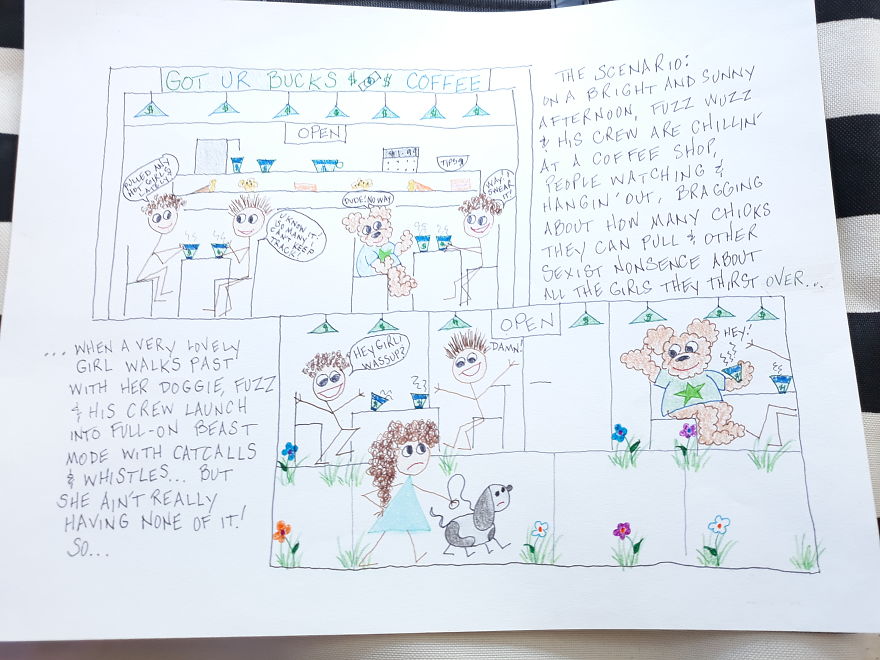 GOT UR BUCKS $ $ $ COFFEE
OPEN
$1.99
TIPS
PULLED ANY
HOT GIRLS
LATELY?
U KNOW IT!
SO MANY I
CAN'T KEEP
TRACK!
DUDE! NO WAY
WAY! I
SWEAR
IT!
THE SCENARIO:
ON A BRIGHT AND SUNNY
AFTERNOON, FUZZ WUZZ
& HIS CREW ARE CHILLIN'
AT A COFFEE SHOP,
PEOPLE WATCHING &
HANGIN' OUT, BRAGGING
ABOUT HOW MANY CHICKS
THEY CAN PULL & OTHER
SEXIST NONSENSE ABOUT
ALL THE GIRLS THEY THIRST OVER...
... WHEN A VERY LOVELY
GIRL WALKS PAST
WITH HER DOGGIE, FUZZ
& HIS CREW LAUNCH
INTO FULL-ON BEAST
MODE WITH CATCALLS
& WHISTLES... BUT
SHE AIN'T REALLY
HAVING NONE OF IT!
SO...
OPEN
HEY GIRL!
WASSUP?
DAMN!
HEY!